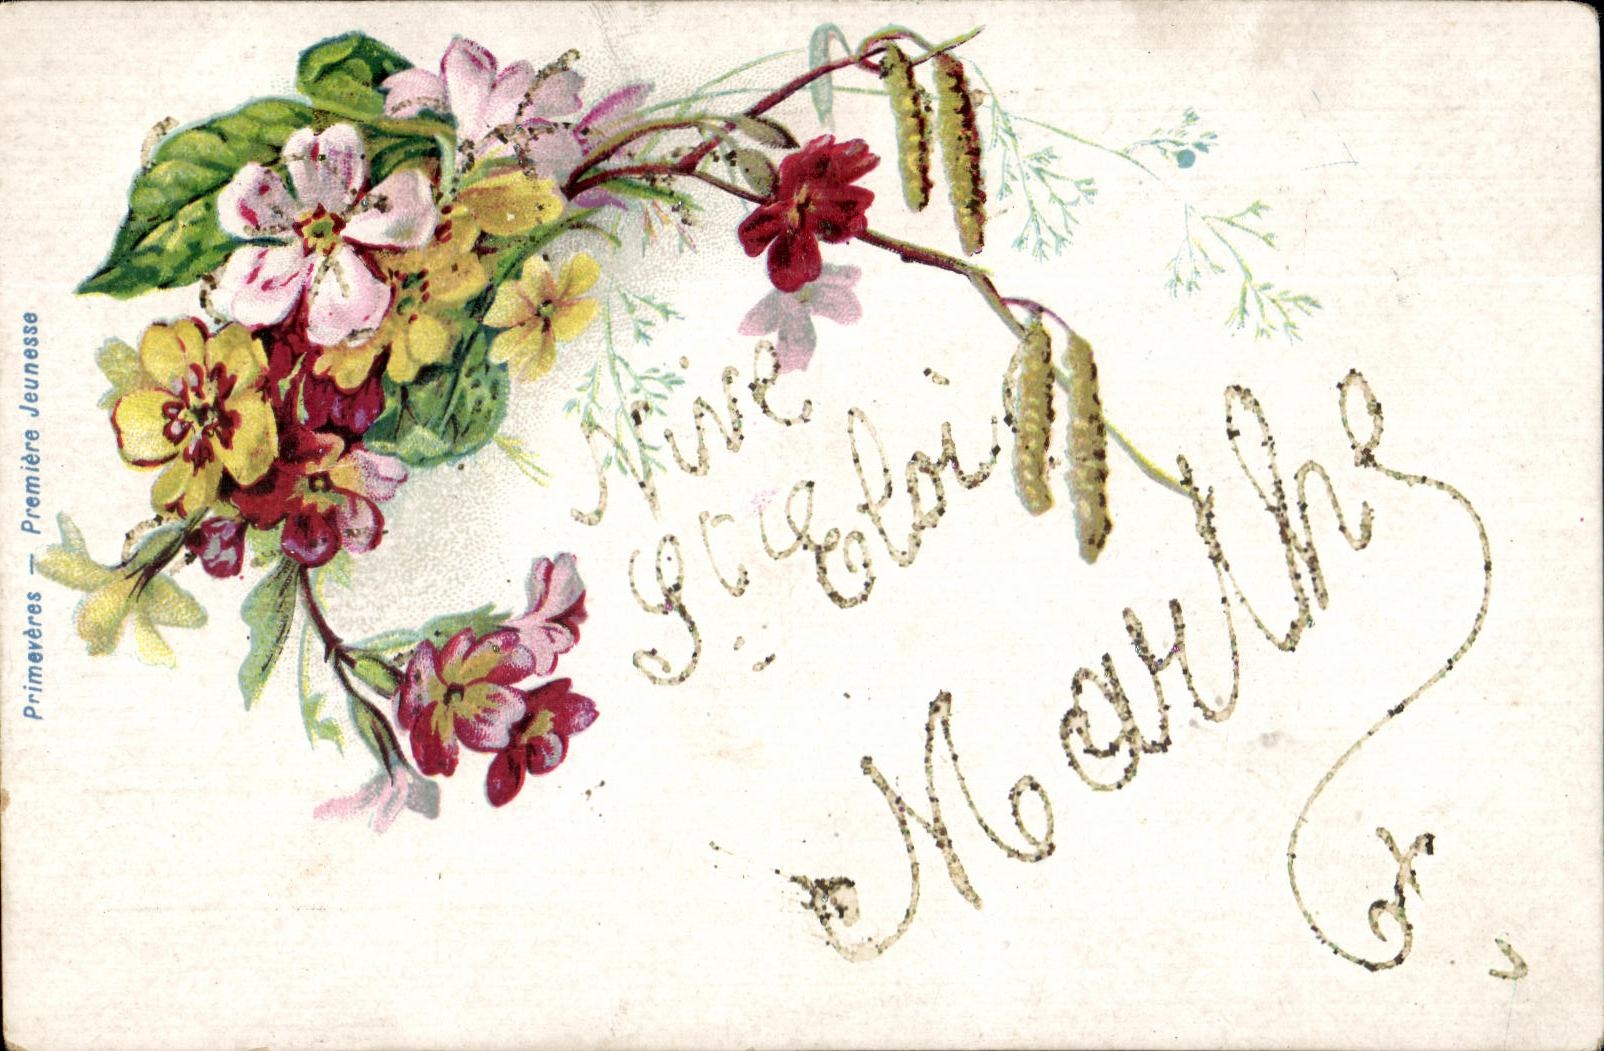 Primevères — Première Jeunesse
Vive
St Eloi
Marthe